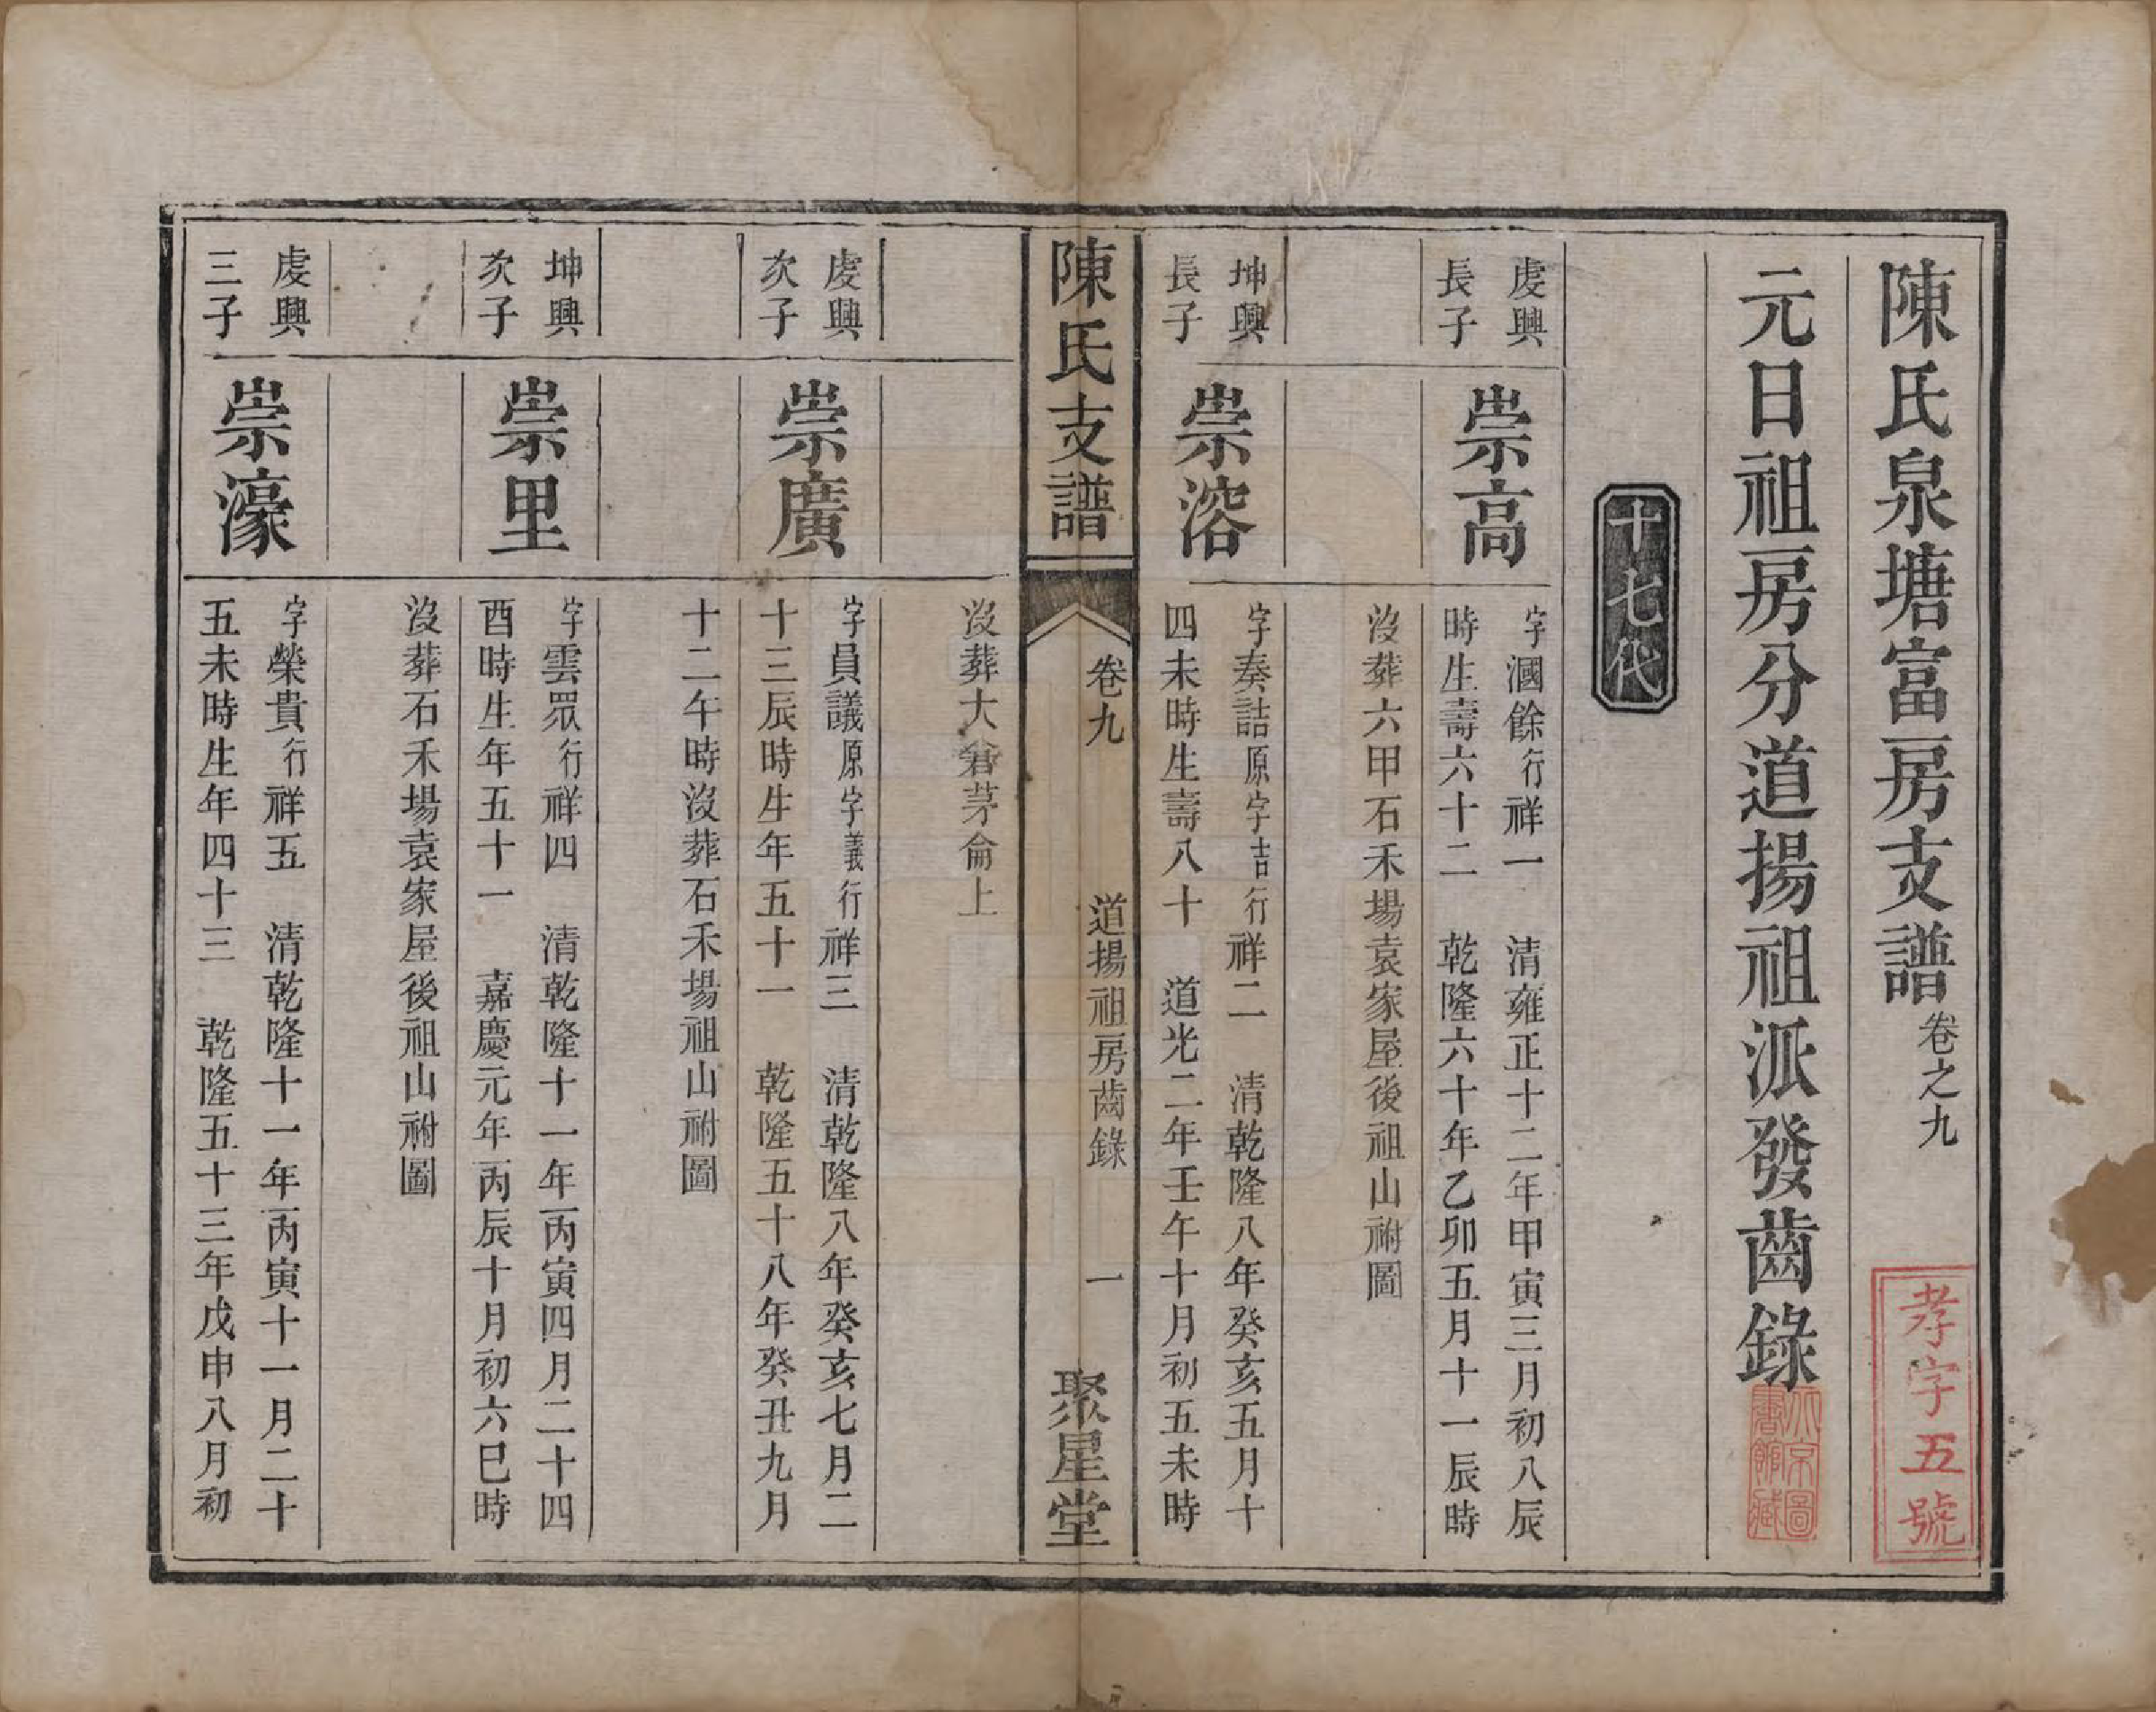 陳氏泉塘富房支譜卷之九
孝字五號
元日祖房分道揚祖派發齒錄
北京圖書館藏
十七代
虔興
長子
崇高
字漍餘行祥一　清雍正十二年甲寅三月初八辰
時生壽六十二　乾隆六十年乙卯五月十一辰時
沒葬六甲石禾場袁家屋後祖山祔圖
坤興
長子
崇溶
字奏詰原字吉行祥二　清乾隆八年癸亥五月十
四未時生壽八十　道光二年壬午十月初五未時
陳氏支譜
卷九
道揚祖房齒錄
一
聚星堂
沒葬大�ھ茅侖上
虔興
次子
崇廣
字員議原字義行祥三　清乾隆八年癸亥七月二
十三辰時生年五十一　乾隆五十八年癸丑九月
十二午時沒葬石禾場祖山祔圖
坤興
次子
崇里
字雲眾行祥四　清乾隆十一年丙寅四月二十四
酉時生年五十一　嘉慶元年丙辰十月初六巳時
沒葬石禾場袁家屋後祖山祔圖
虔興
三子
崇濠
字榮貴行祥五　清乾隆十一年丙寅十一月二十
五未時生年四十三　乾隆五十三年戊申八月初